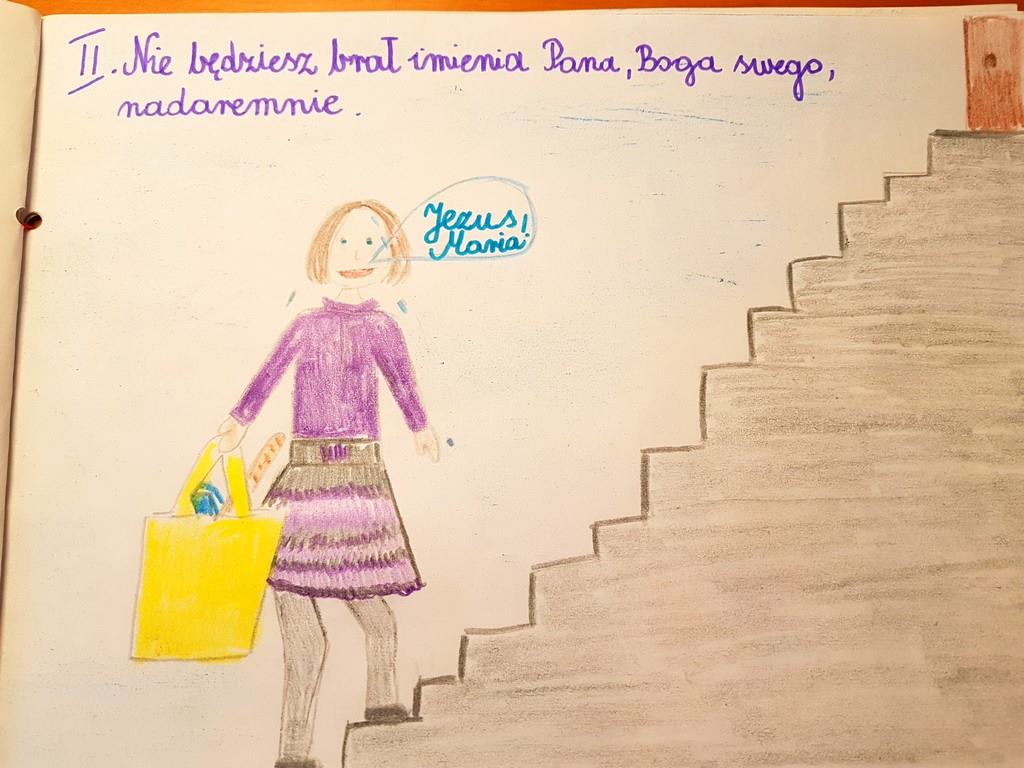 II. Nie będziesz brał imienia Pana, Boga swego,
nadaremnie.
Jezus,
Maria!